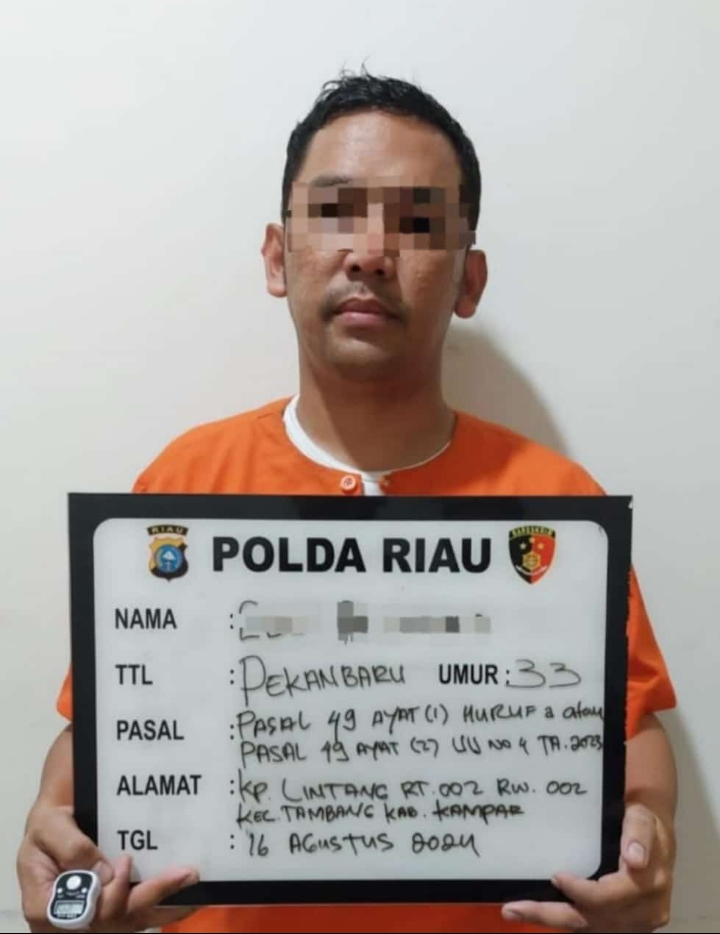 RIAU
POLDA RIAU
NAMA :
TTL : PEKANBARU UMUR : 33
PASAL : PASAL 49 AYAT (1) HURUF a atau
PASAL 49 AYAT (2) UU NO 4 TA.2023
ALAMAT : KP. LINTANG RT.002 RW.002
KEC.TAMBANG KAB. KAMPAR
TGL : 16 AGUSTUS 2024